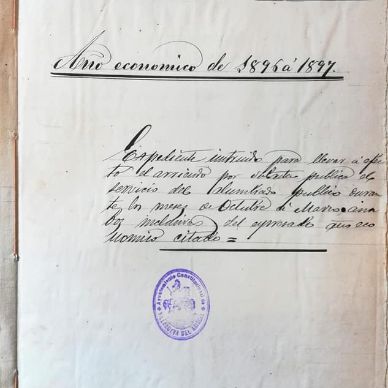 Año economico de 1896 á 1897.
Expediente instruido para llevar á efec
to el arriendo por subasta publica del
servicio del alumbrado publico duran
te los meses de Octubre á Marzo
del expresado año eco
nomico citado =
Ayuntamiento Constitucional de